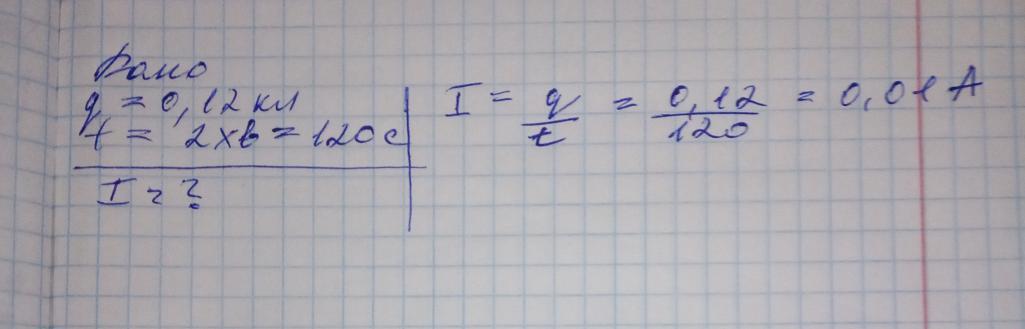 Дано
q = 0,12 кл
t = 2 хв = 120 с
I = ?
I = q/t = 0,12/120 = 0,01 А